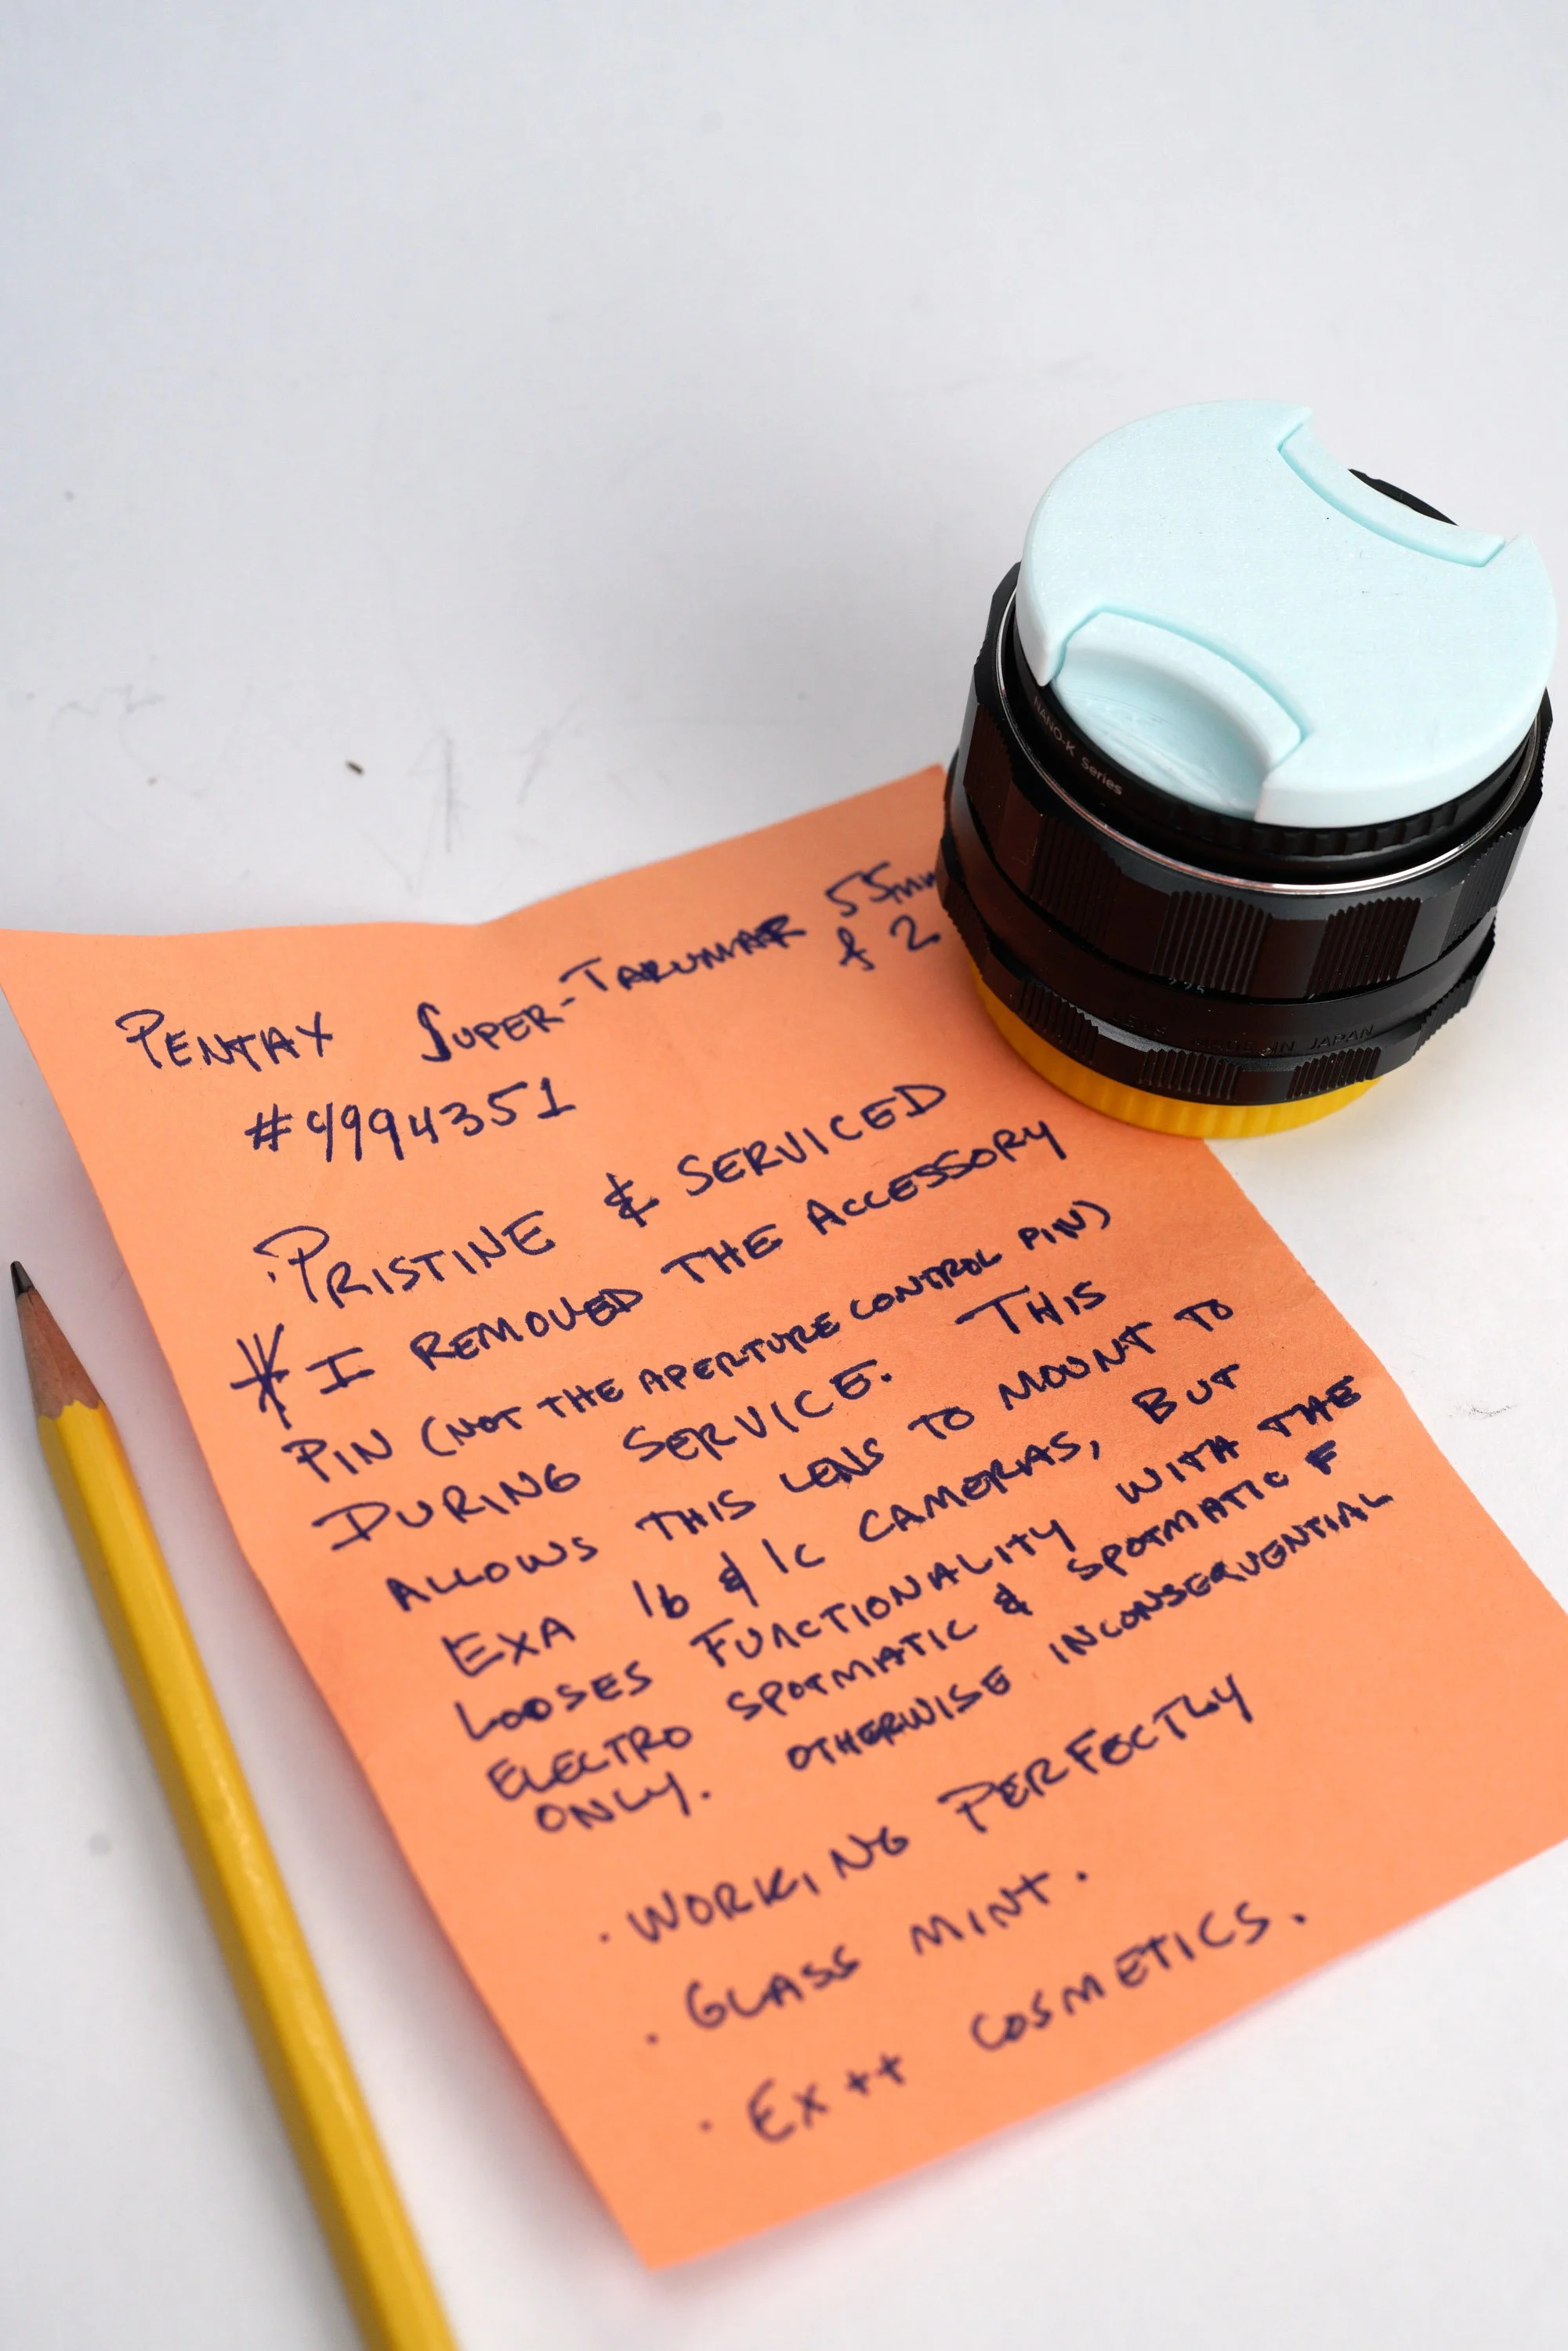 PENTAX SUPER-TAKUMAR 55mm
f 2
#4994351
·PRISTINE & SERVICED
* I REMOVED THE ACCESSORY
PIN (NOT THE APERTURE CONTROL PIN)
DURING SERVICE. THIS
ALLOWS THIS LENS TO MOUNT TO
EXA 1b & 1c CAMERAS, BUT
LOOSES FUNCTIONALITY WITH THE
ELECTRO SPOTMATIC & SPOTMATIC F
ONLY. OTHERWISE INCONSEQUENTIAL
· WORKING PERFECTLY
· GLASS MINT.
· EX ++ COSMETICS.
NANO-K Series
MADE IN JAPAN